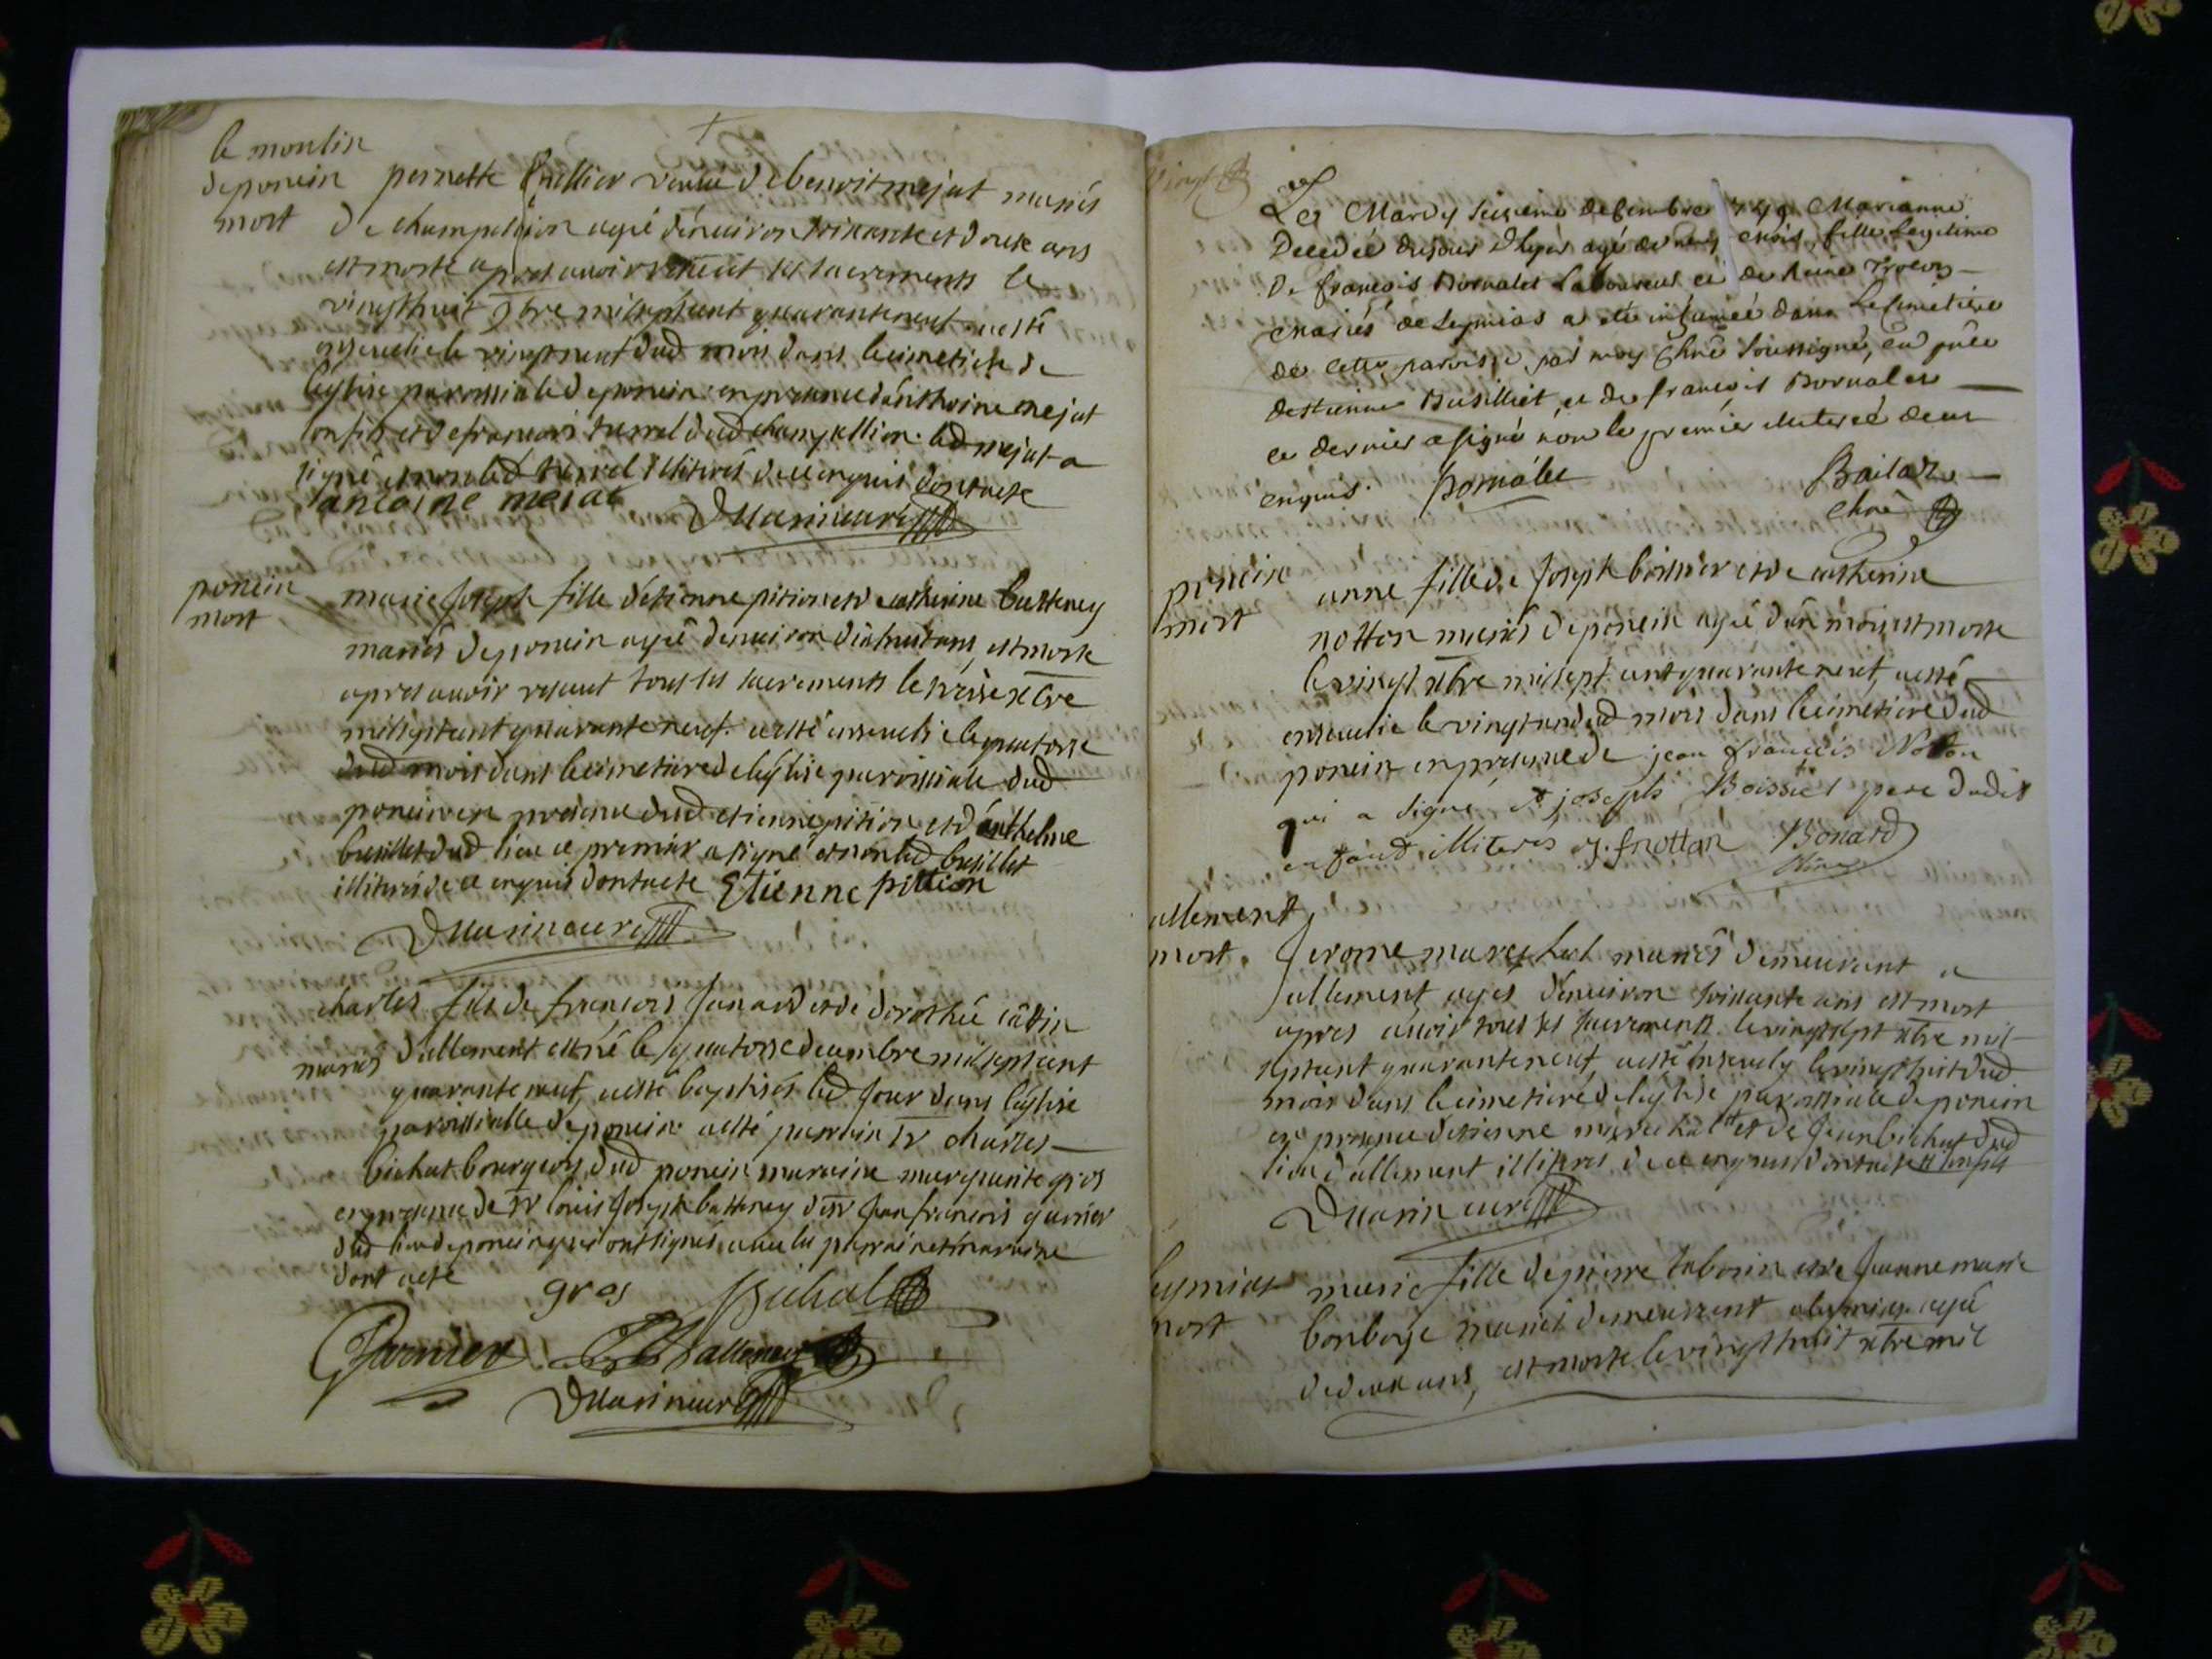 le moulin
deponcin
mort
pernette veuve de benoit mejat mariés
de champollion agée d'enuiron soixante et douze ans
est morte apres auoir receut les sacrements le
vingthuit 9bre milseptcent quarante neuf a esté
enseuelie le vingtneuf dud mois dans le cimetiere de
leglise paroissiale de poncin en presence d'anthoine mejat
son fils et de francois turrel dud champollion led mejat a
signé et non led turrel illiterés de ce enquis dont acte
antoine mejat
poncin
mort
marie Joseph fille d'etienne pition et de catherine butteney
mariés de poncin agée denuiron dixhuit ans, est morte
apres auoir receut tous les sacrements le treize xbre
milseptcent quarante neuf a esté enseuelie le quatorse
dud mois dans le cimetiere de leglise paroissiale dud
poncin en presence dud etienne pition et d'anthelme
busillet dud lieu ce premier a signé et non led busillet
illiterés de ce enquis dont acte Etienne pition
charles fils de francois Janard et de dorothée
mariés d'allement est né le quatorse decembre milseptcent
quarante neuf, a esté baptisés led Jour dans leglise
paroissialle de poncin a esté parrain Sr charles
bichat bourgeois dud poncin maraine marguerite gros
en presence de Sr louis Joseph batteney et Sr Jean francois garnier
dud lieu de poncin qui ont signés auec les parrain et maraine
dont acte gros Bichat
Garnier Batteney
Le Mardy seizieme decembre 1749 Marianne
Decedée du jour d'hyer agé de neuf mois, fille Legitime
De françois Bornalet Laboureur et de Reine
mariés de Leymias a été inhumée dans Le cimetiere
de cette paroisse par moy soussigné, en
d'estienne Busilliet, et de françois Bornalet
ce dernier a signé non le premier illiteré de ce
enquis. Bornalet
poncin
mort
anne fille de Joseph boissier et de catherine
notton mariés de poncin agée d'un mois est morte
le vingt xbre milsept cent quarante neuf, a esté
enseuelie le vingt un dud mois dans le cimetiere dud
poncin en presence de jean françois Notton
qui a signé et joseph Boissier pere dudit
enfant illiterés j. f. notton Bonard
allement
mort
Jerome mareschal mariés demeurant a
allement agés d'enuiron soixante ans est mort
apres auoir tous les sacrements le vingtsept xbre mil
septcent quarante neuf, a esté enseuely le vingthuit dud
mois dans le cimetiere de leglise paroissiale de poncin
en presence d'etienne marechal et de Jean bichat dud
lieu d'allement illiterés de ce enquis dont acte
leymias
mort
marie fille de pierre taborin et de Jeanne marie
mariés demeurant a leymias agée
de deux ans, est morte le vingthuit xbre mil